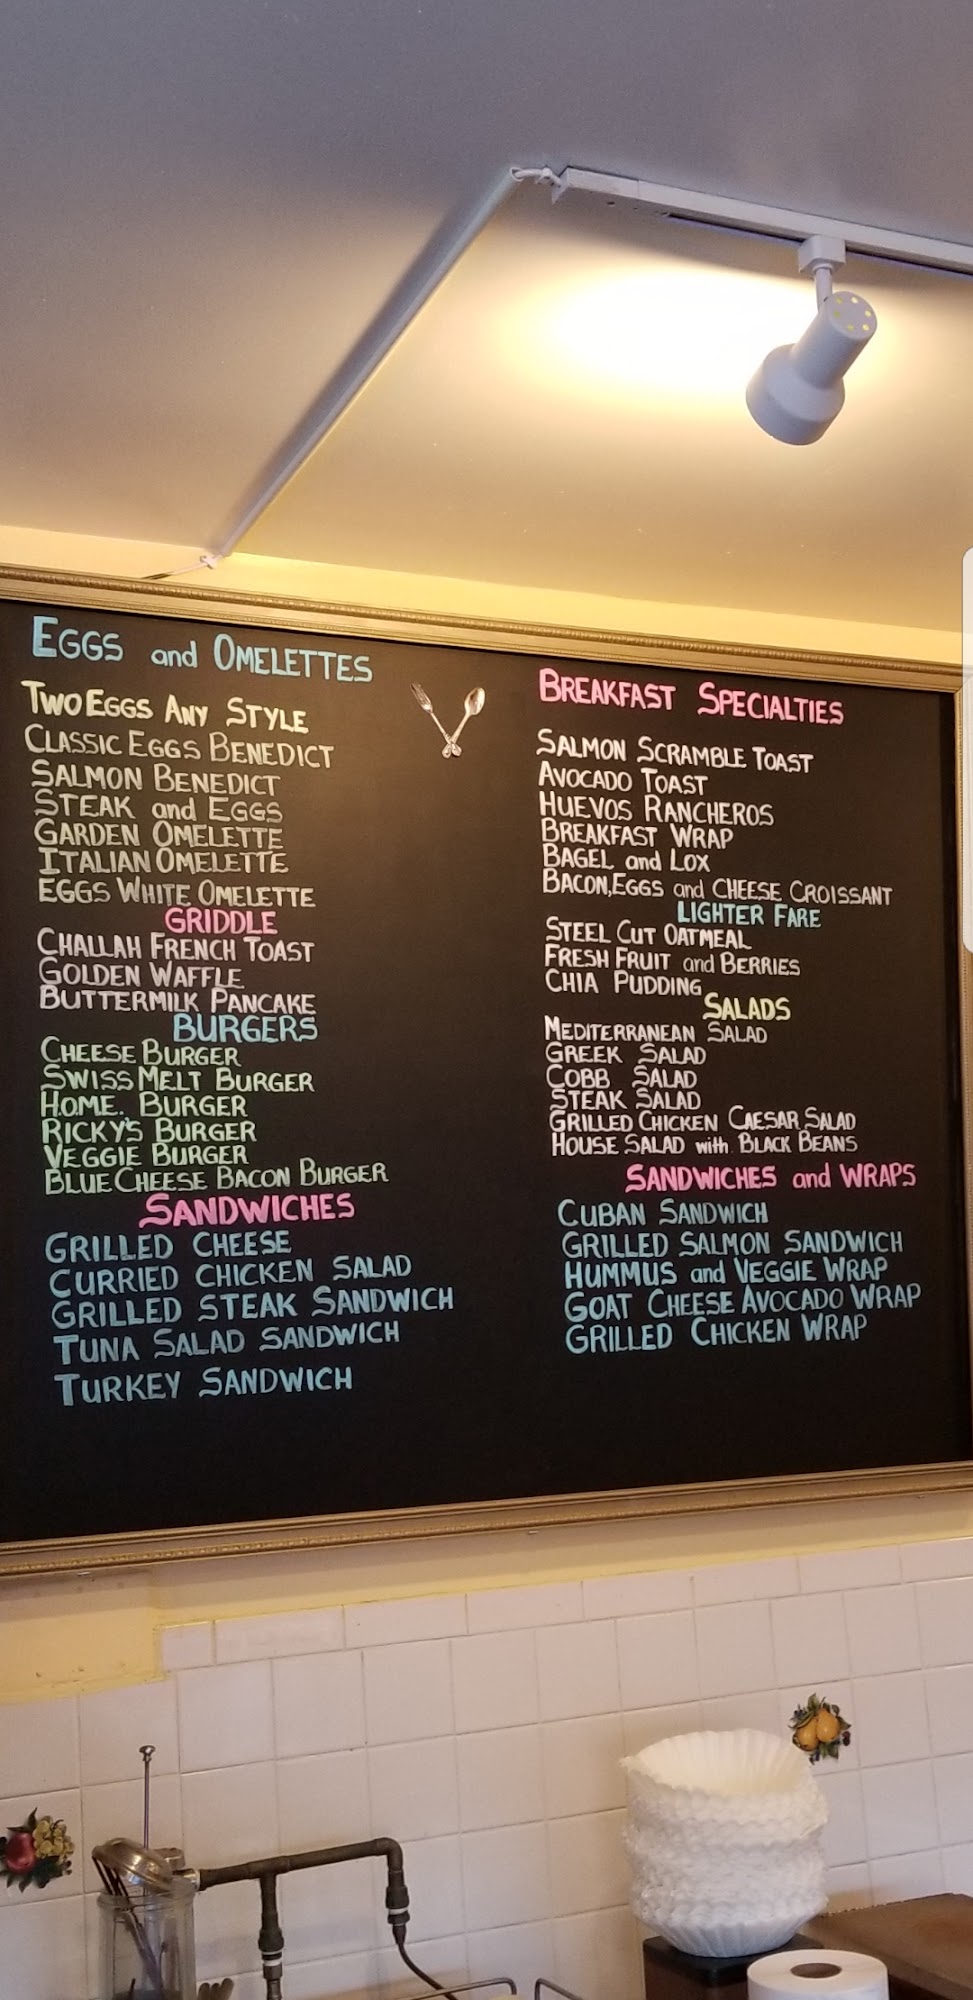 EGGS and OMELETTES
TWO EGGS ANY STYLE
CLASSIC EGGS BENEDICT
SALMON BENEDICT
STEAK and EGGS
GARDEN OMELETTE
ITALIAN OMELETTE
EGGS WHITE OMELETTE
GRIDDLE
CHALLAH FRENCH TOAST
GOLDEN WAFFLE
BUTTERMILK PANCAKE
BURGERS
CHEESE BURGER
SWISS MELT BURGER
HOME. BURGER
RICKY'S BURGER
VEGGIE BURGER
BLUE CHEESE BACON BURGER
SANDWICHES
GRILLED CHEESE
CURRIED CHICKEN SALAD
GRILLED STEAK SANDWICH
TUNA SALAD SANDWICH
TURKEY SANDWICH
BREAKFAST SPECIALTIES
SALMON SCRAMBLE TOAST
AVOCADO TOAST
HUEVOS RANCHEROS
BREAKFAST WRAP
BAGEL and LOX
BACON, EGGS and CHEESE CROISSANT
LIGHTER FARE
STEEL CUT OATMEAL
FRESH FRUIT and BERRIES
CHIA PUDDING
SALADS
MEDITERRANEAN SALAD
GREEK SALAD
COBB SALAD
STEAK SALAD
GRILLED CHICKEN CAESAR SALAD
HOUSE SALAD with BLACK BEANS
SANDWICHES and WRAPS
CUBAN SANDWICH
GRILLED SALMON SANDWICH
HUMMUS and VEGGIE WRAP
GOAT CHEESE AVOCADO WRAP
GRILLED CHICKEN WRAP